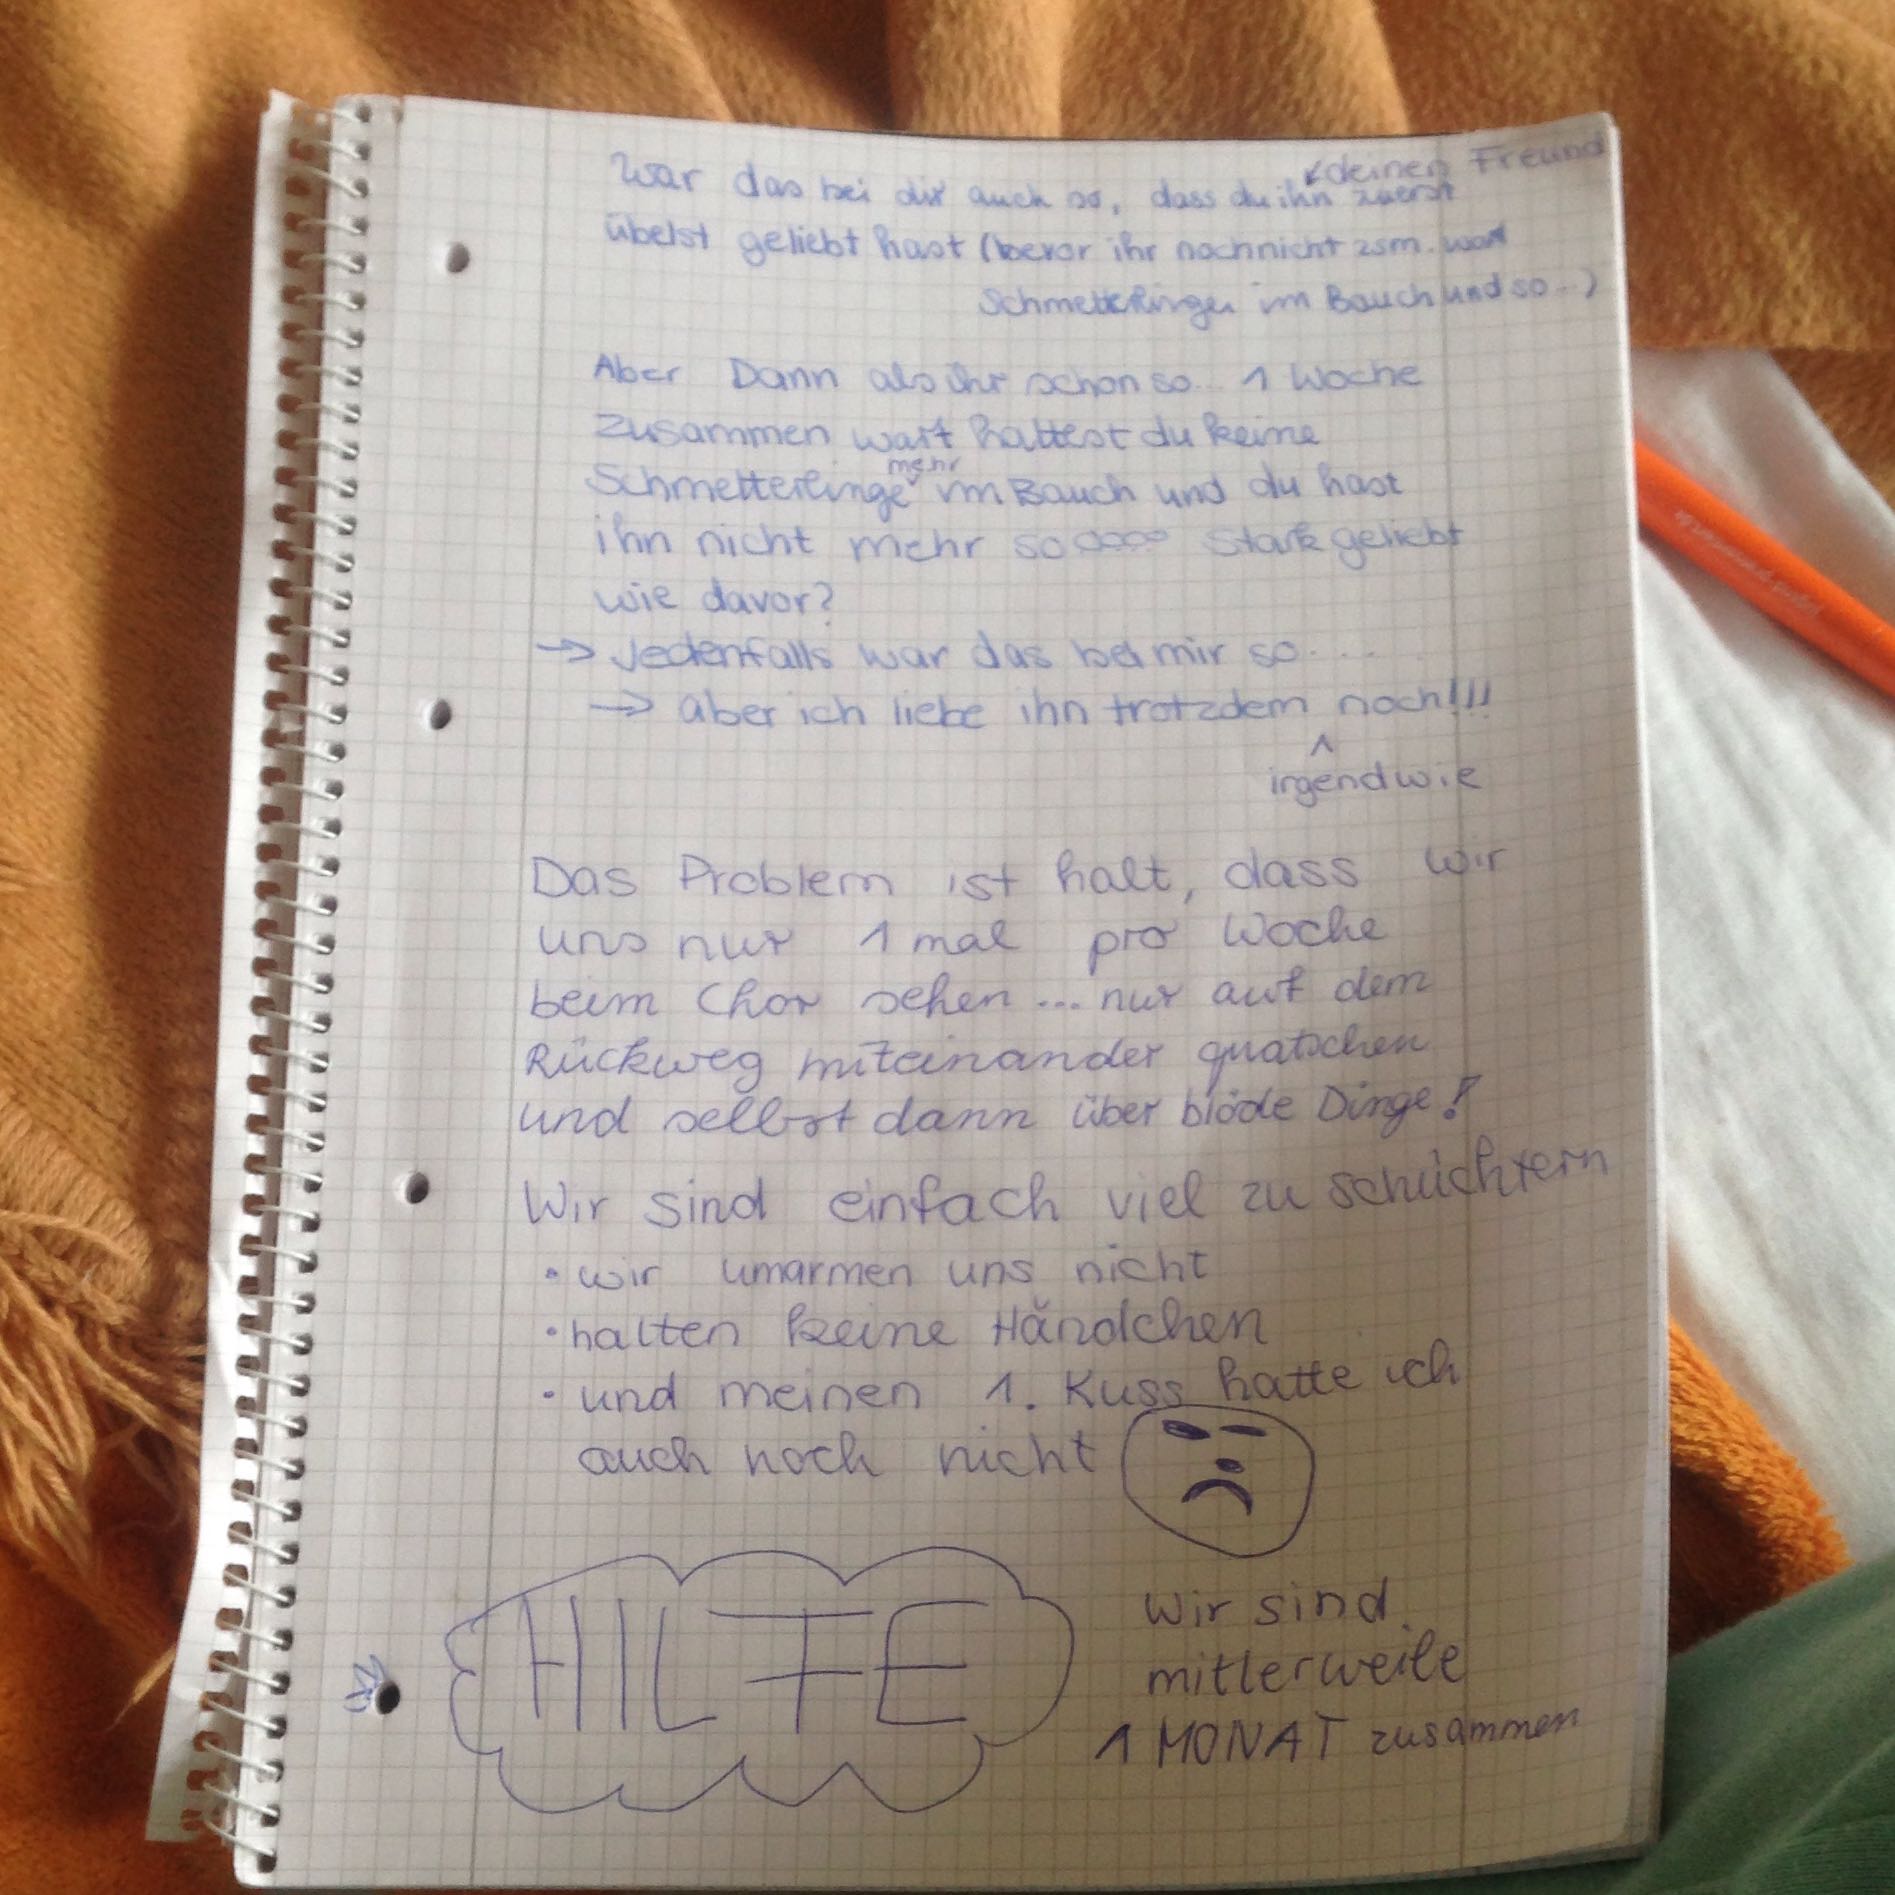 ↙deinen Freund
War das bei dir auch so, dass du ihn zuerst
übelst geliebt hast (bevor ihr nochnicht zsm. wart
Schmetterlinge im Bauch und so...)
Aber Dann als ihr schon so... 1 Woche
zusammen wart hattest du keine
mehr
Schmetterlinge im Bauch und du hast
ihn nicht mehr sooooo stark geliebt
wie davor?
→ Jedenfalls war das bei mir so....
→ aber ich liebe ihn trotzdem noch!!!
^
irgendwie
Das Problem ist halt, dass wir
uns nur 1 mal pro Woche
beim Chor sehen... nur auf dem
Rückweg miteinander quatschen
und selbst dann über blöde Dinge!
Wir sind einfach viel zu schüchtern
• wir umarmen uns nicht
• halten keine Händchen
• und meinen 1. Kuss hatte ich
auch noch nicht
HILFE
Wir sind
mitlerweile
1 MONAT zusammen